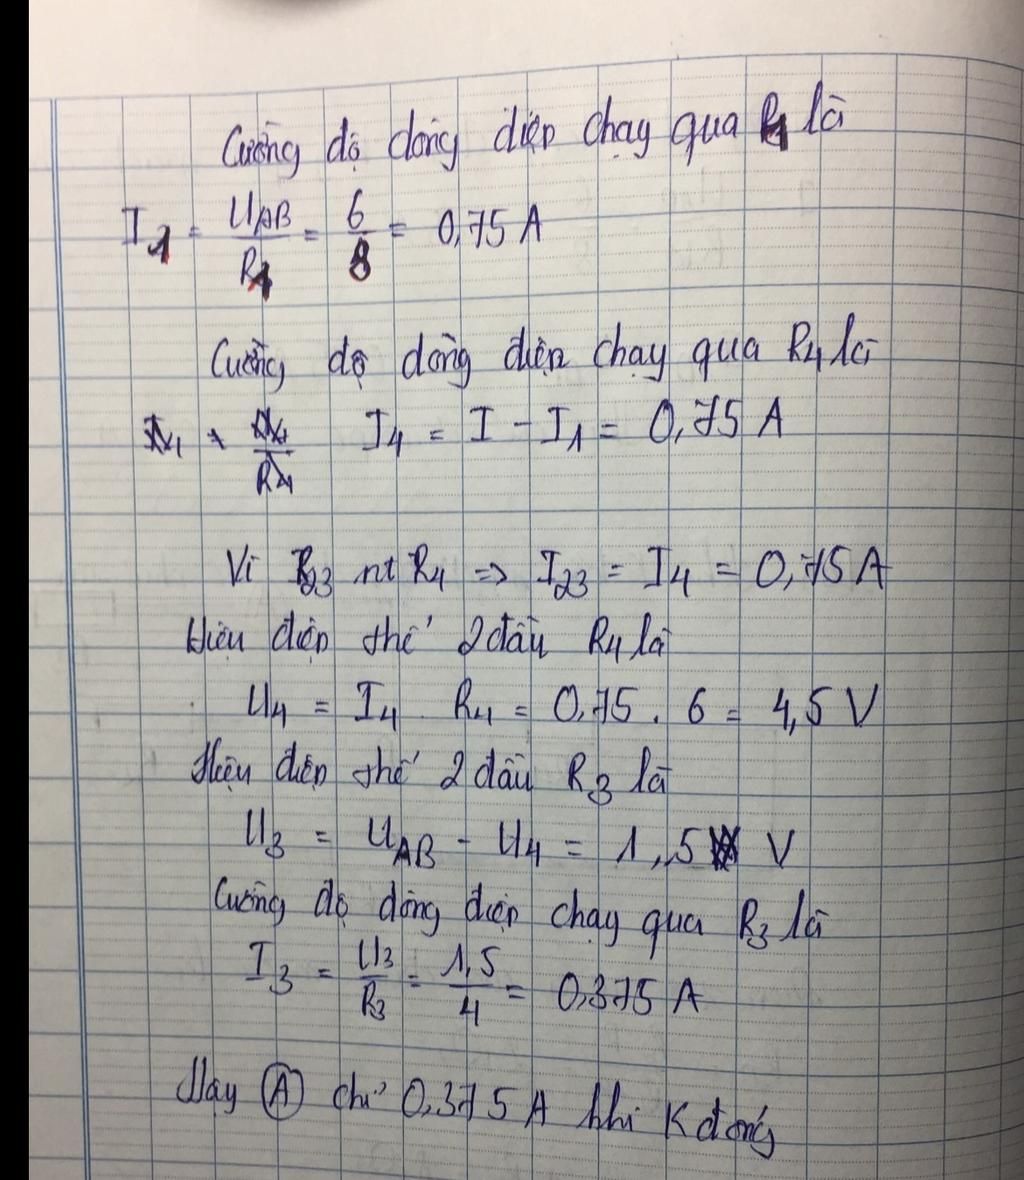 Cường độ dòng điện chạy qua R1 là
I1 = UAB/R1 = 6/8 = 0,75 A
Cường độ dòng điện chạy qua R4 là
I4 = I - I1 = 0,75 A
Vì R23 nt R4 => I23 = I4 = 0,75 A
Hiệu điện thế 2 đầu R4 là
U4 = I4 . R4 = 0,75 . 6 = 4,5 V
Hiệu điện thế 2 đầu R3 là
U3 = UAB - U4 = 1,5 V
Cường độ dòng điện chạy qua R3 là
I3 = U3/R3 = 1,5/4 = 0,375 A
Vậy (A) chỉ 0,375 A khi K đóng